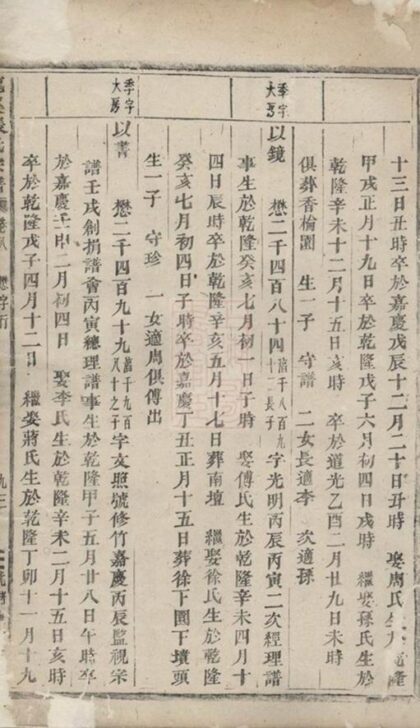 十三日丑時卒於嘉慶戊辰十二月二十日丑時 娶周氏生於乾隆
甲戌正月十九日卒於乾隆戊子六月初四日戌時 繼娶孫氏生於
乾隆辛未十二月十五日亥時 卒於道光乙酉二月廿九日未時
俱葬香榆園 生一子 守譜 二女長適李 次適孫
季字大房
以鏡 懋二千四百八十四 字光明丙辰丙寅二次經理譜
事生於乾隆癸亥七月初一日子時 娶傅氏生於乾隆辛未四月十
四日辰時卒於乾隆辛亥五月十七日葬南壇 繼娶徐氏生於乾隆
癸亥七月初四日子時卒於嘉慶丁丑正月十五日葬徐下園下墳頭
生一子 守珍 一女適周俱傅出
季字大房
以書 懋二千四百九十九 字友照號修竹嘉慶丙辰監視宗
譜壬戌創捐譜會丙寅總理譜事生於乾隆甲子五月廿八日午時卒
於嘉慶壬申二月初四日 娶李氏生於乾隆辛未二月十五日亥時
卒於乾隆戊子四月十二日 繼娶蔣氏生於乾隆丁卯十一月十九
懋字行